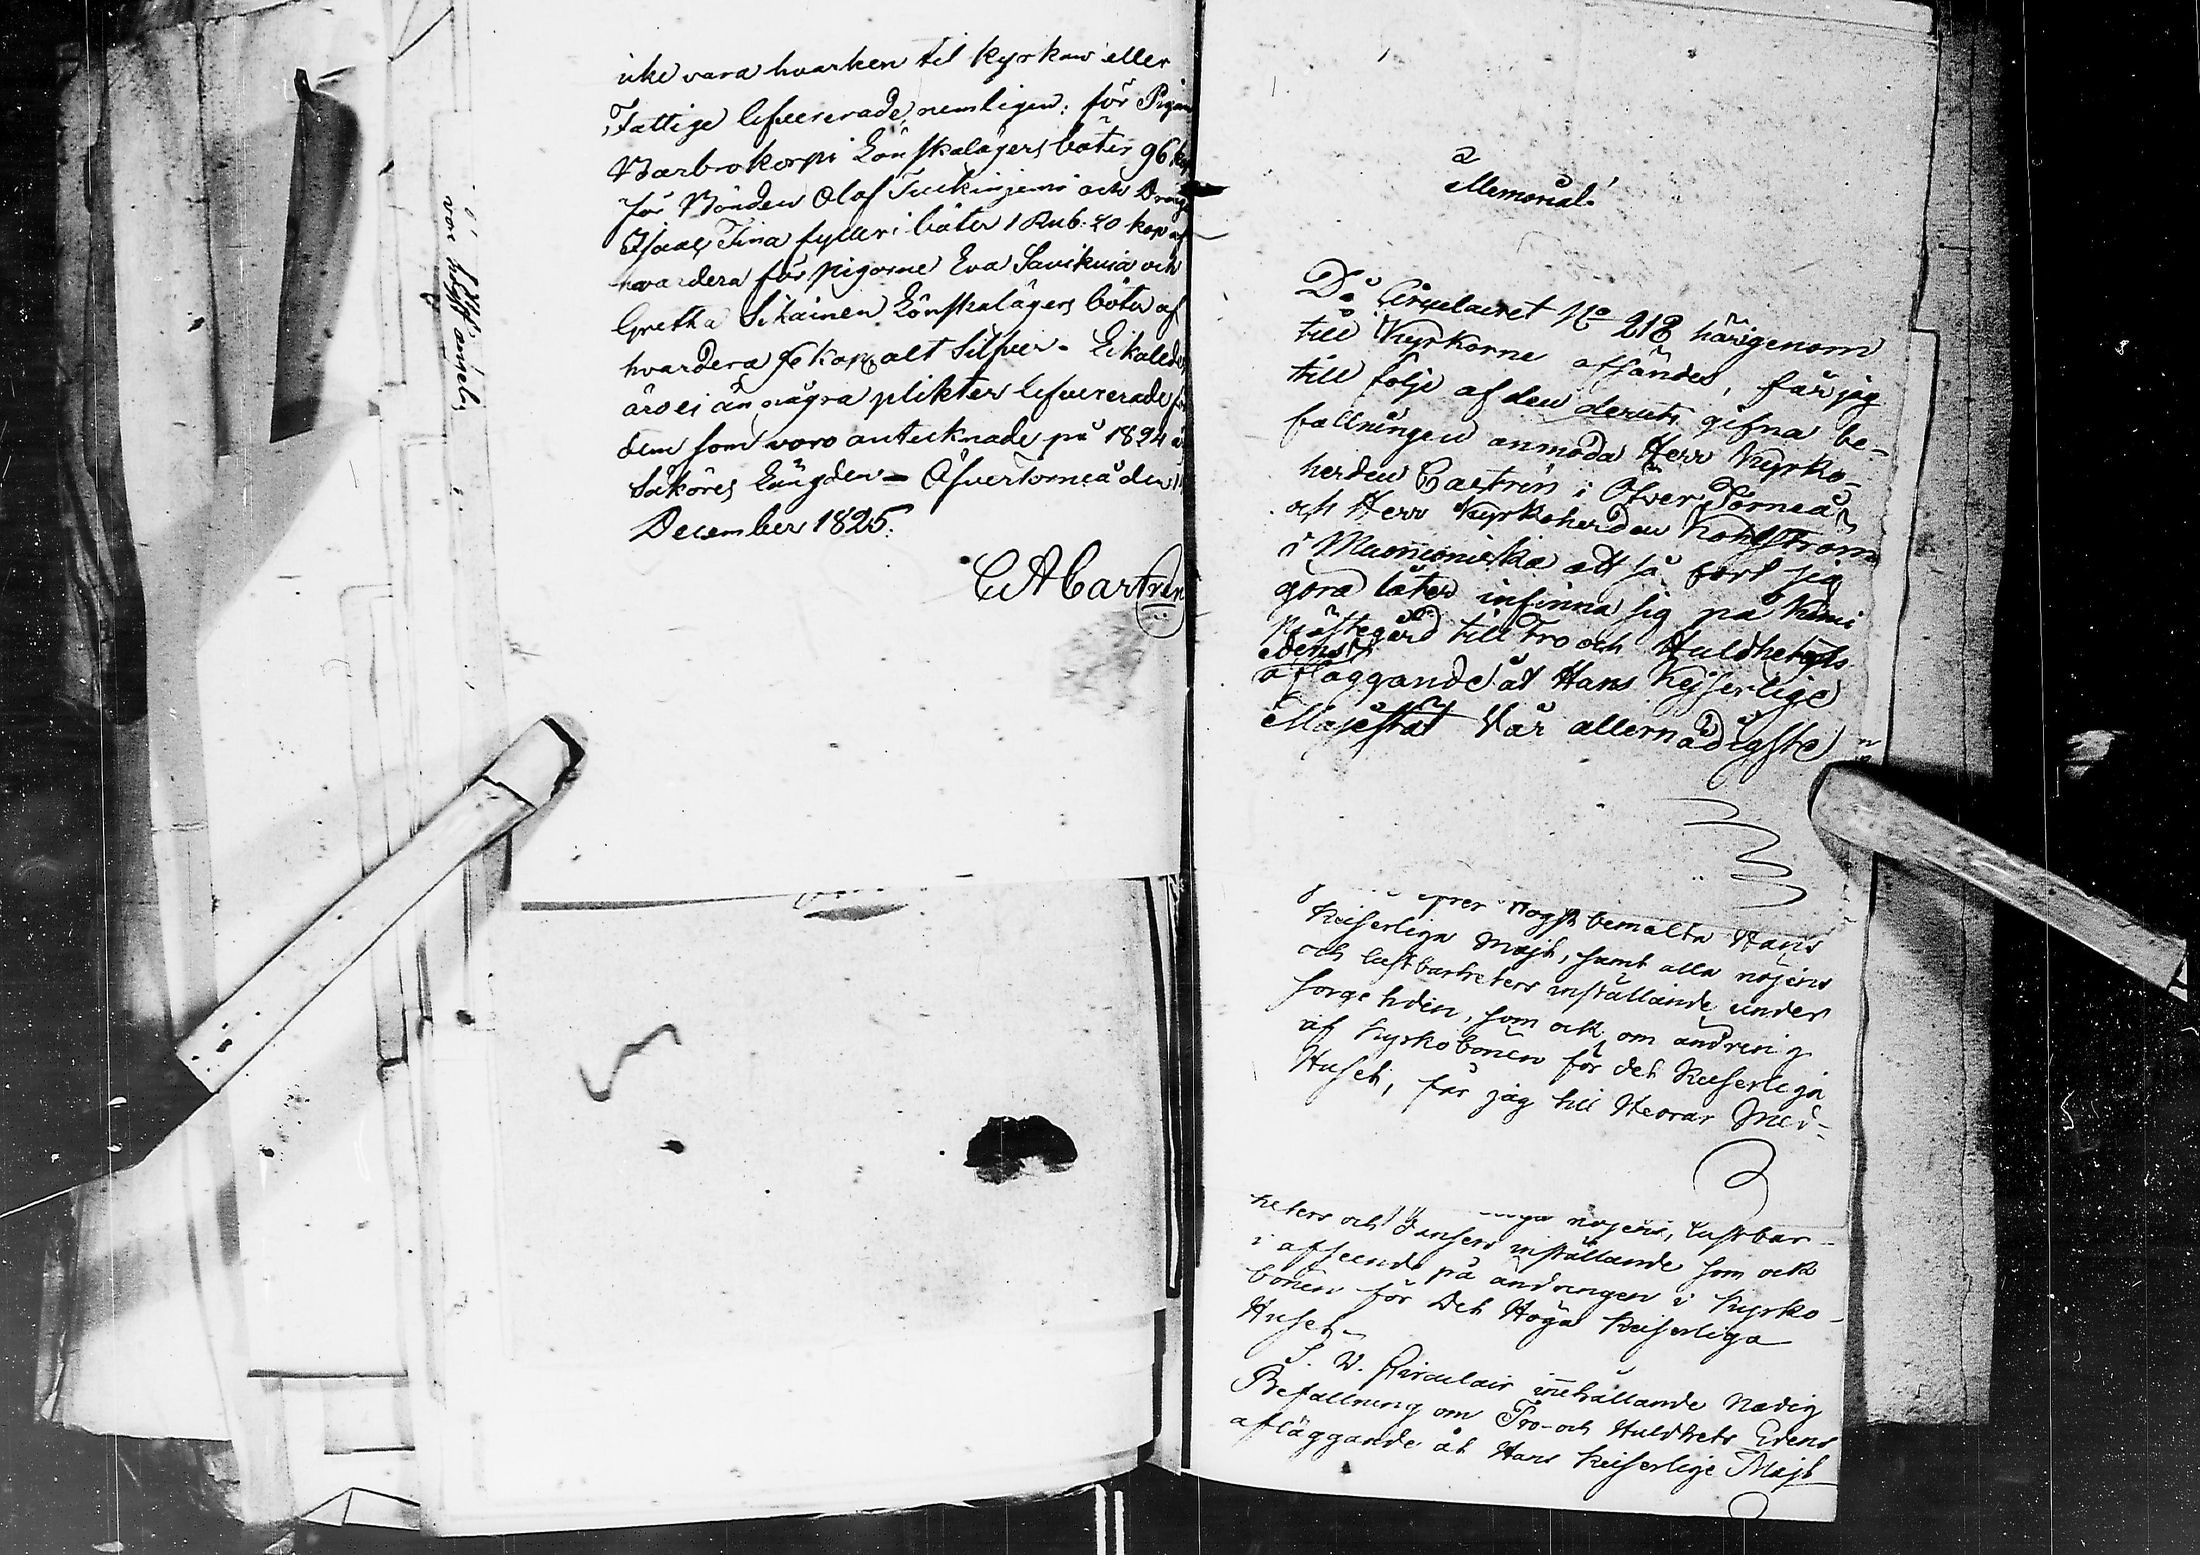 icke vara hvarken til kyrkan eller
Fattige lefvererade, nemligen: för Pigan
Barbro Korpi Lönskalägers böter 96 kop
för Bonden Olof Tuckinjemi och Dräng
Isaac Fina fylleri böter 1 Rub. 20 kop af
hvardera för pigorne Eva Savikuia och
Gretha Sikainen Lönskalägers böter af
hvardera 96 kop alt Silfver. Likaledes
äro ej än några plikter lefvererade för
dem som voro antecknade på 1824 års
Saköres Längden – Öfvertorneå den
December 1825.
C A Castrén
Memorial.
Då Circulairet No 218 härigenom
till Kyrkorne afsändes, får jag
till följe af den deruti gifna be-
fallningen anmoda Herr Kyrko-
herden Castrén i Öfver Torneå
och Herr Kyrkoherden Kohlström
i Muonioniska att så fort sig
göra låter infinna sig på Kemi
Prästegård till Tro och Huldhets
Edens
afläggande åt Hans Kejserlige
Majestät Vår allernådigste
högstbemälte Hans
Keiserliga Majt, samt alla nöjens
och lustbarheters inställande under
sorgetiden, som ock om ändring
af Kyrkobönen för det Keiserliga
Huset, får jag till Herrar Med-
heters och Dansers nöjens, lustbar-
inställande som ock
i afseende på ändringen i Kyrko-
bönen för Det Höga Keiserliga
Huset.
S. D. Circulair innehållande Nådig
Befallning om Tro- och Huldhets Edens
afläggande åt Hans Keiserlige Majt